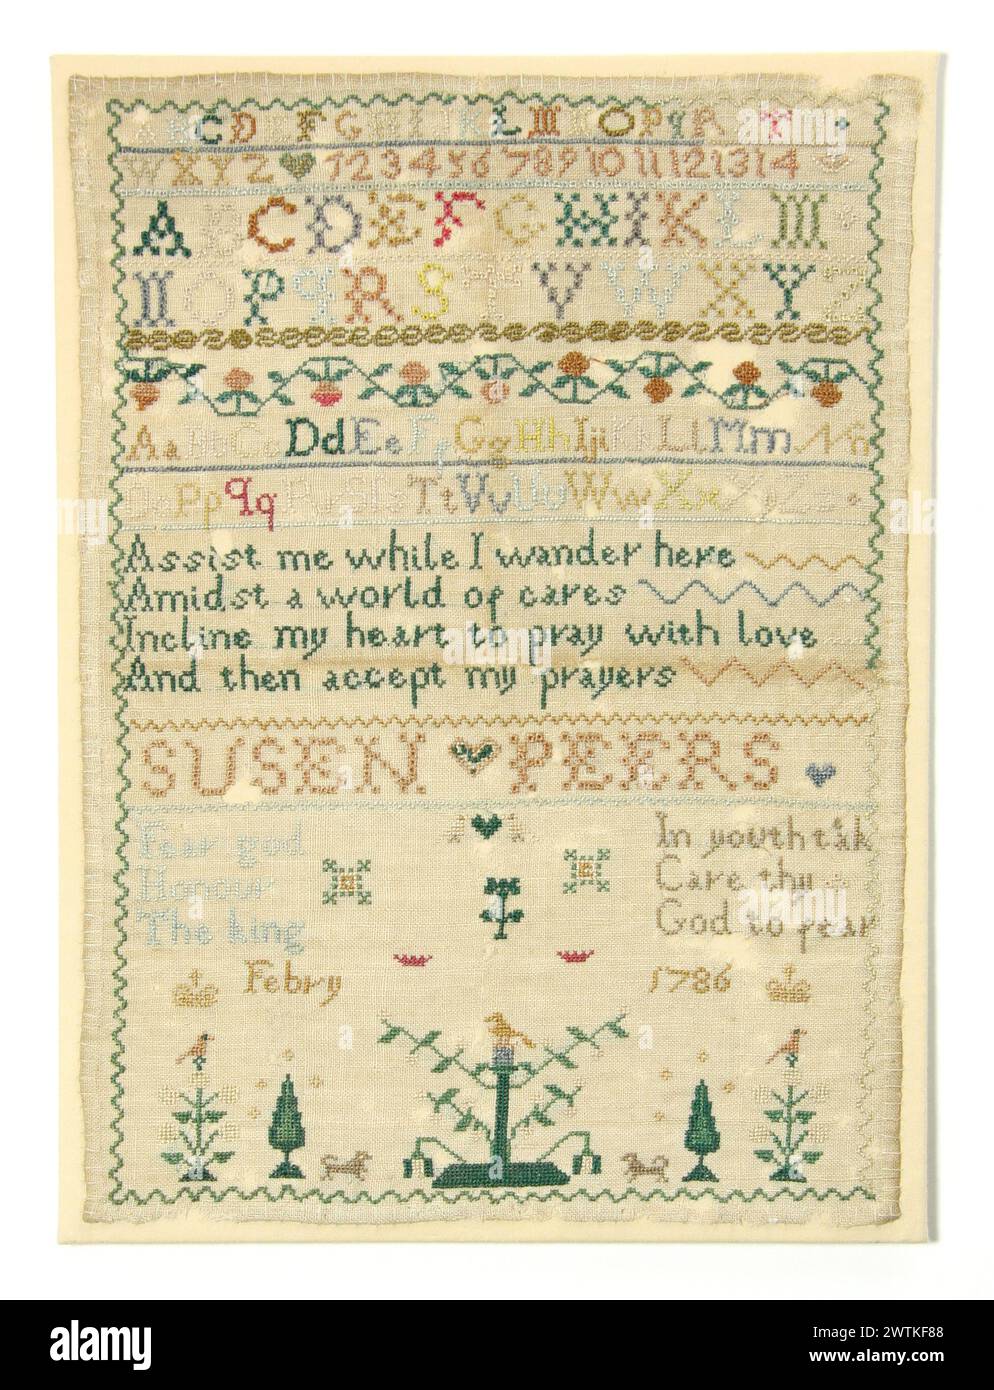 A B C D E F G H I K L M N O P q R T
W X Y Z 1 2 3 4 5 6 7 8 9 10 11 12 13 14
A B C D E F G H I K L M
N O P q R S T V W X Y Z
Aa Bb Cc Dd Ee Ff Gg Hh Iji Kk Ll Mm Nn
Oo Pp qq Rr Sſs Tt Vv Uu Ww Xx Yy Zz
Assist me while I wander here
Amidst a world of cares
Incline my heart to pray with love
And then accept my prayers
SUSEN PEERS
Fear god
Honour
The king
In youth tak
Care thy
God to fear
Febry 1786
alamy
Image ID: 2WTKF88
www.alamy.com